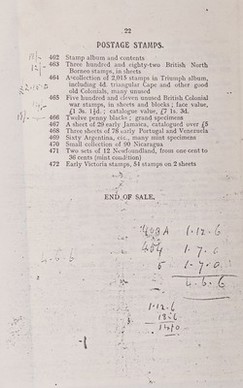 22
POSTAGE STAMPS.
462 Stamp album and contents
463 Three hundred and eighty-two British North
Borneo stamps, in sheets
464 A collection of 2,915 stamps in Triumph album,
including 4d. triangular Cape and other good
old Colonials, many unused
465 Five hundred and eleven unused British Colonial
war stamps, in sheets and blocks; face value,
£1 3s. 1½d.; catalogue value, £7 1s. 3d.
466 Twelve penny blacks; grand specimens
467 A sheet of 29 early Jamaica, catalogued over £5
468 Three sheets of 78 early Portugal and Venezuela
469 Sixty Argentina, etc., many mint specimens
470 Small collection of 90 Nicaragua
471 Two sets of 12 Newfoundland, from one cent to
36 cents (mint condition)
472 Early Victoria stamps, 54 stamps on 2 sheets
END OF SALE.
403A 1-12-6
404 1.7.0
5 1.7.0
4.6.6
4.6.6
1.12.6